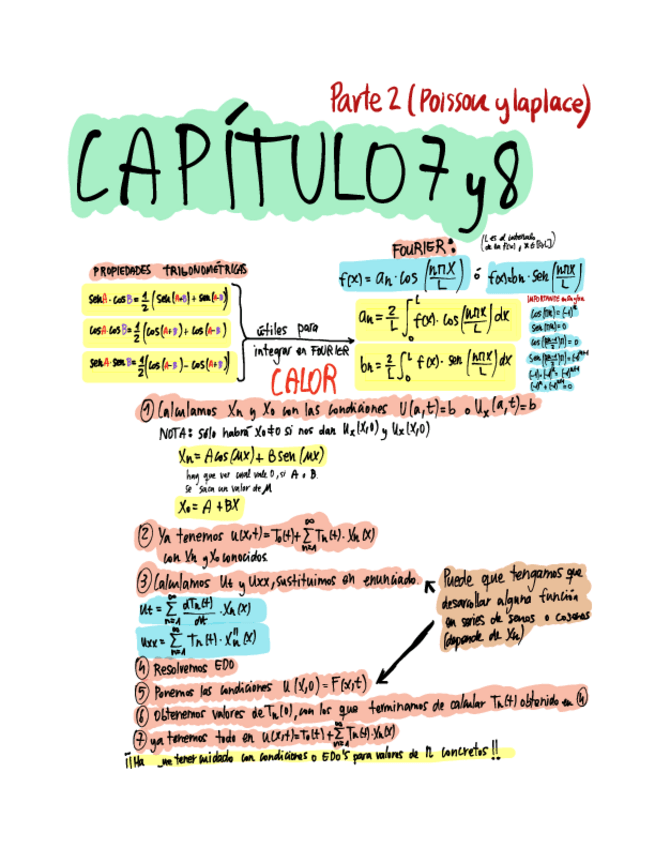 Parte 2 (Poisson y laplace)
CAPÍTULO 7 y 8
PROPIEDADES TRIGONOMÉTRICAS
senA · cosB = 1/2 (sen(A+B) + sen(A-B))
cosA · cosB = 1/2 (cos(A+B) + cos(A-B))
senA · senB = 1/2 (cos(A-B) - cos(A+B))
útiles para
integrar en FOURIER
FOURIER:
(L es el intervalo
f(x) = an · cos (nπx/L) ó f(x) = bn · sen (nπx/L)
an = 2/L ∫₀ᴸ f(x) · cos (nπx/L) dx
bn = 2/L ∫₀ᴸ f(x) · sen (nπx/L) dx
IMPORTANTE
cos(πn) = (-1)ⁿ
sen(πn) = 0
CALOR
① Calculamos Xn y X₀ con las condiciones U(a,t)=b o Ux(a,t)=b
NOTA: sólo habrá X₀≠0 si nos dan Ux(x,0) y Ux(x,0)
Xn = A cos(μx) + B sen(μx)
hay que ver cual vale 0, si A o B.
se saca un valor de μ
X₀ = A + BX
② Ya tenemos u(x,t) = T₀(t) + ∑ₙ₌₁^∞ Tn(t) · Xn(x)
con Xn y X₀ conocidos
③ Calculamos Ut y Uxx, sustituimos en enunciado
Ut = ∑ₙ₌₁^∞ dTn(t)/dt · Xn(x)
Uxx = ∑ₙ₌₁^∞ Tn(t) · X''n(x)
Puede que tengamos que
desarrollar alguna función
en series de senos o cosenos
(depende de Xn)
④ Resolvemos EDO
⑤ Ponemos las condiciones U(x,0) = F(x,t)
⑥ Obtenemos valores de Tn(0), con los que terminamos de calcular Tn(t) obtenido en ④
⑦ ya tenemos todo en u(x,t) = T₀(t) + ∑ₙ₌₁^∞ Tn(t) · Xn(x)
¡¡Ha ue tener cuidado con condiciones o EDO'S para valores de n concretos!!